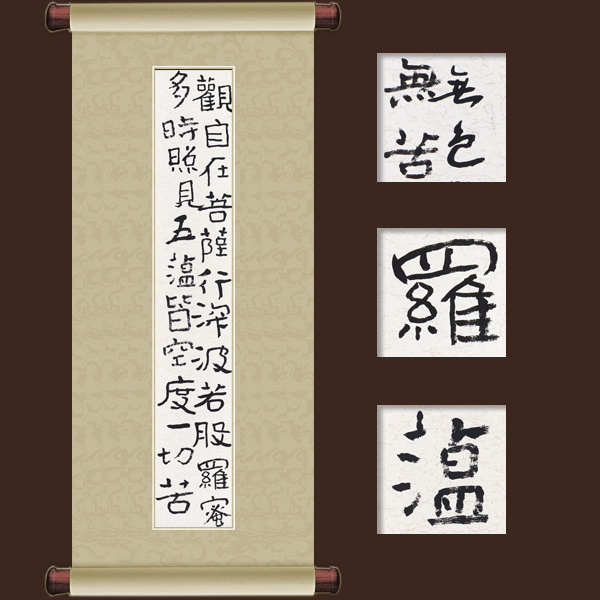 觀自在菩薩行深波若般羅蜜
多時照見五薀皆空度一切苦
无色
無苦
羅
薀